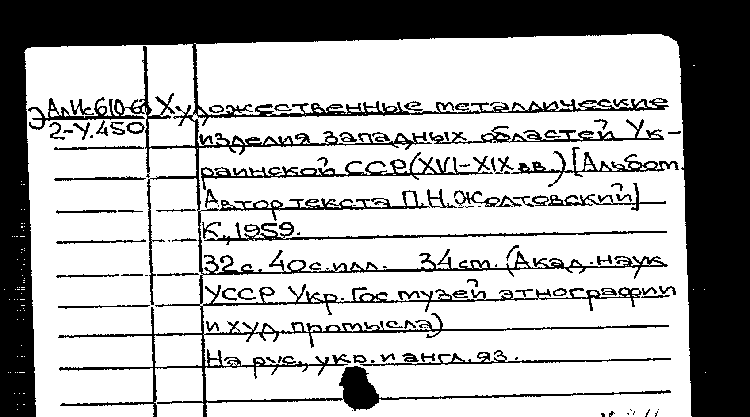 Э АлИс610-60 Художественные металлические
2-У.450 изделия западных областей Ук-
раинской ССР(XVI-XIX вв.)[Альбом.
Автор текста П.Н.Жолтовский]
К.,1959.
32с. 40с.илл. 34см. (Акад.наук
УССР Укр.Гос.музей этнографии
и худ. промысла)
На рус., укр. и англ. яз.